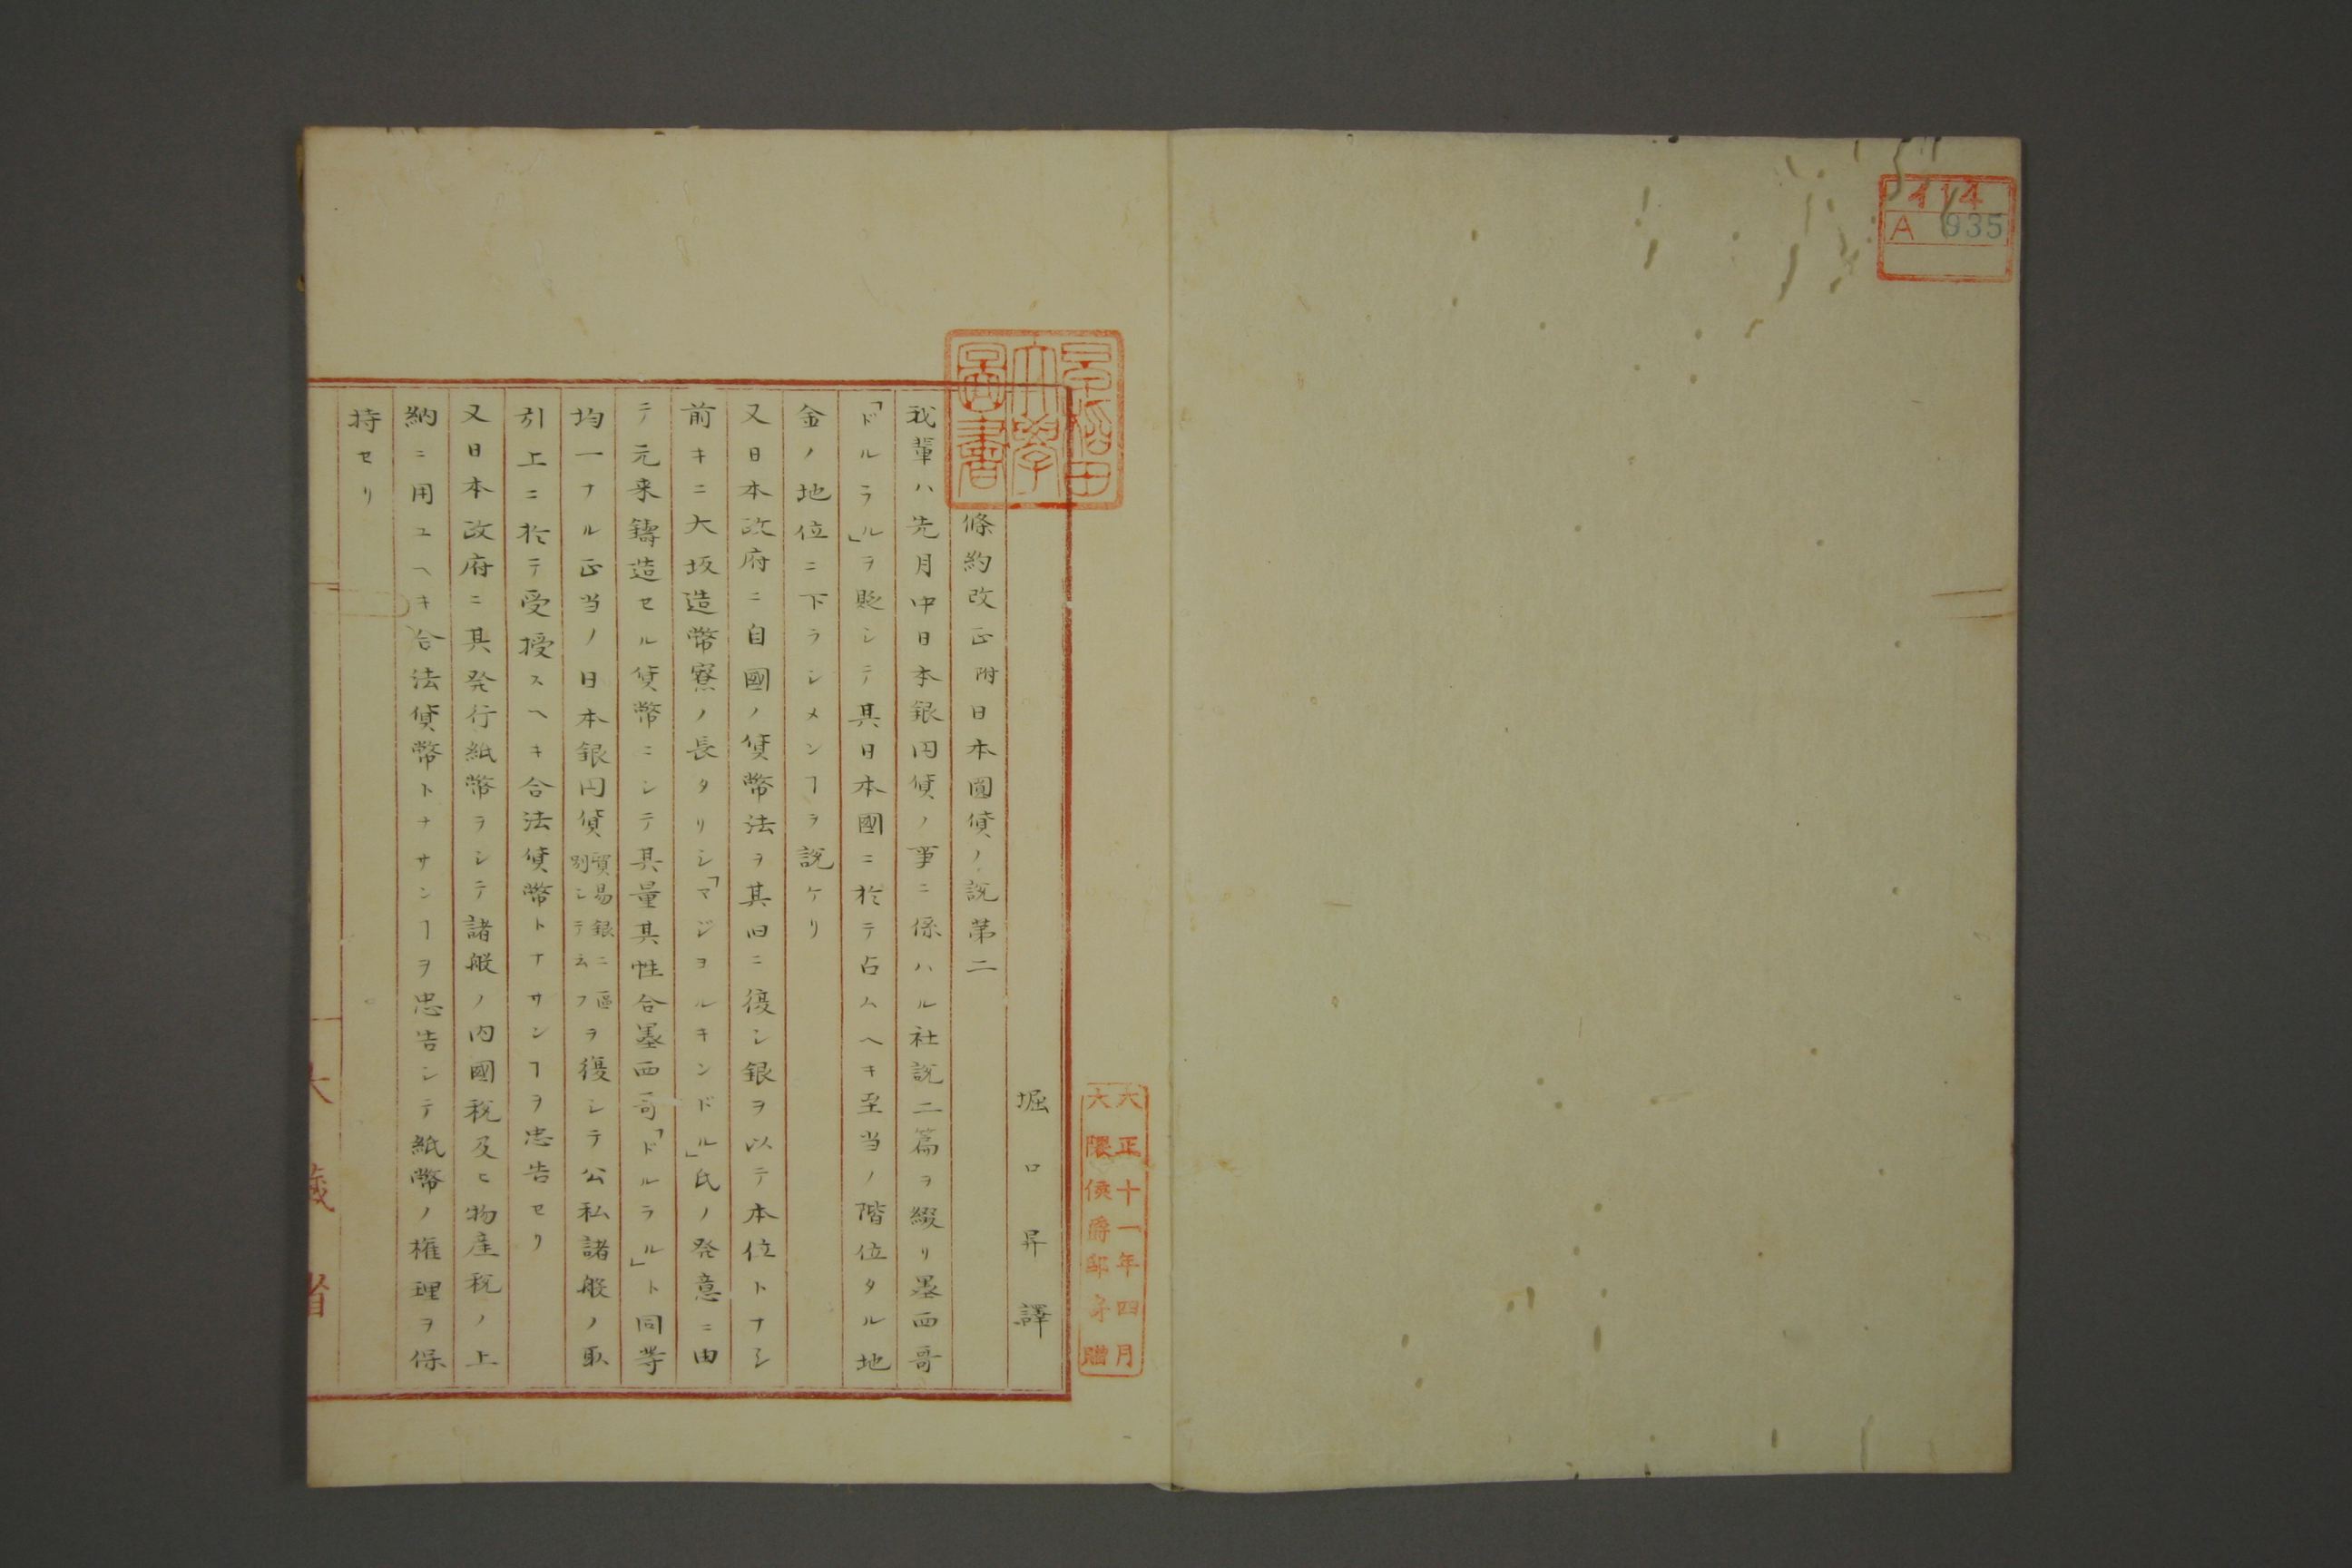 414
A 935
早稲田
大學
圖書
大正十一年四月
大隈侯爵邸寄贈
堀口昇譯
條約改正附日本國債ノ説第二
我輩ハ先月中日本銀円貨ノ事ニ係ハル社説二篇ヲ綴リ墨西哥
「ドルラル」ヲ貶シテ其日本國ニ於テ占ムヘキ至当ノ階位タル地
金ノ地位ニ下ラシメンヿヲ説ケリ
又日本政府ニ自國ノ貨幣法ヲ其旧ニ復シ銀ヲ以テ本位トナシ
前キニ大坂造幣寮ノ長タリシ「マジヨルキンドル」氏ノ発意ニ由
テ元来鑄造セル貨幣ニシテ其量其性合墨西哥「ドルラル」ト同等
均一ナル正当ノ日本銀円貨貿易銀ニ區別シテ云フヲ復シテ公私諸般ノ取
引上ニ於テ受授スヘキ合法貨幣トナサンヿヲ忠告セリ
又日本政府ニ其発行紙幣ヲシテ諸般ノ内國税及ヒ物産税ノ上
納ニ用ユヘキ合法貨幣トナサンヿヲ忠告シテ紙幣ノ権理ヲ保
持セリ